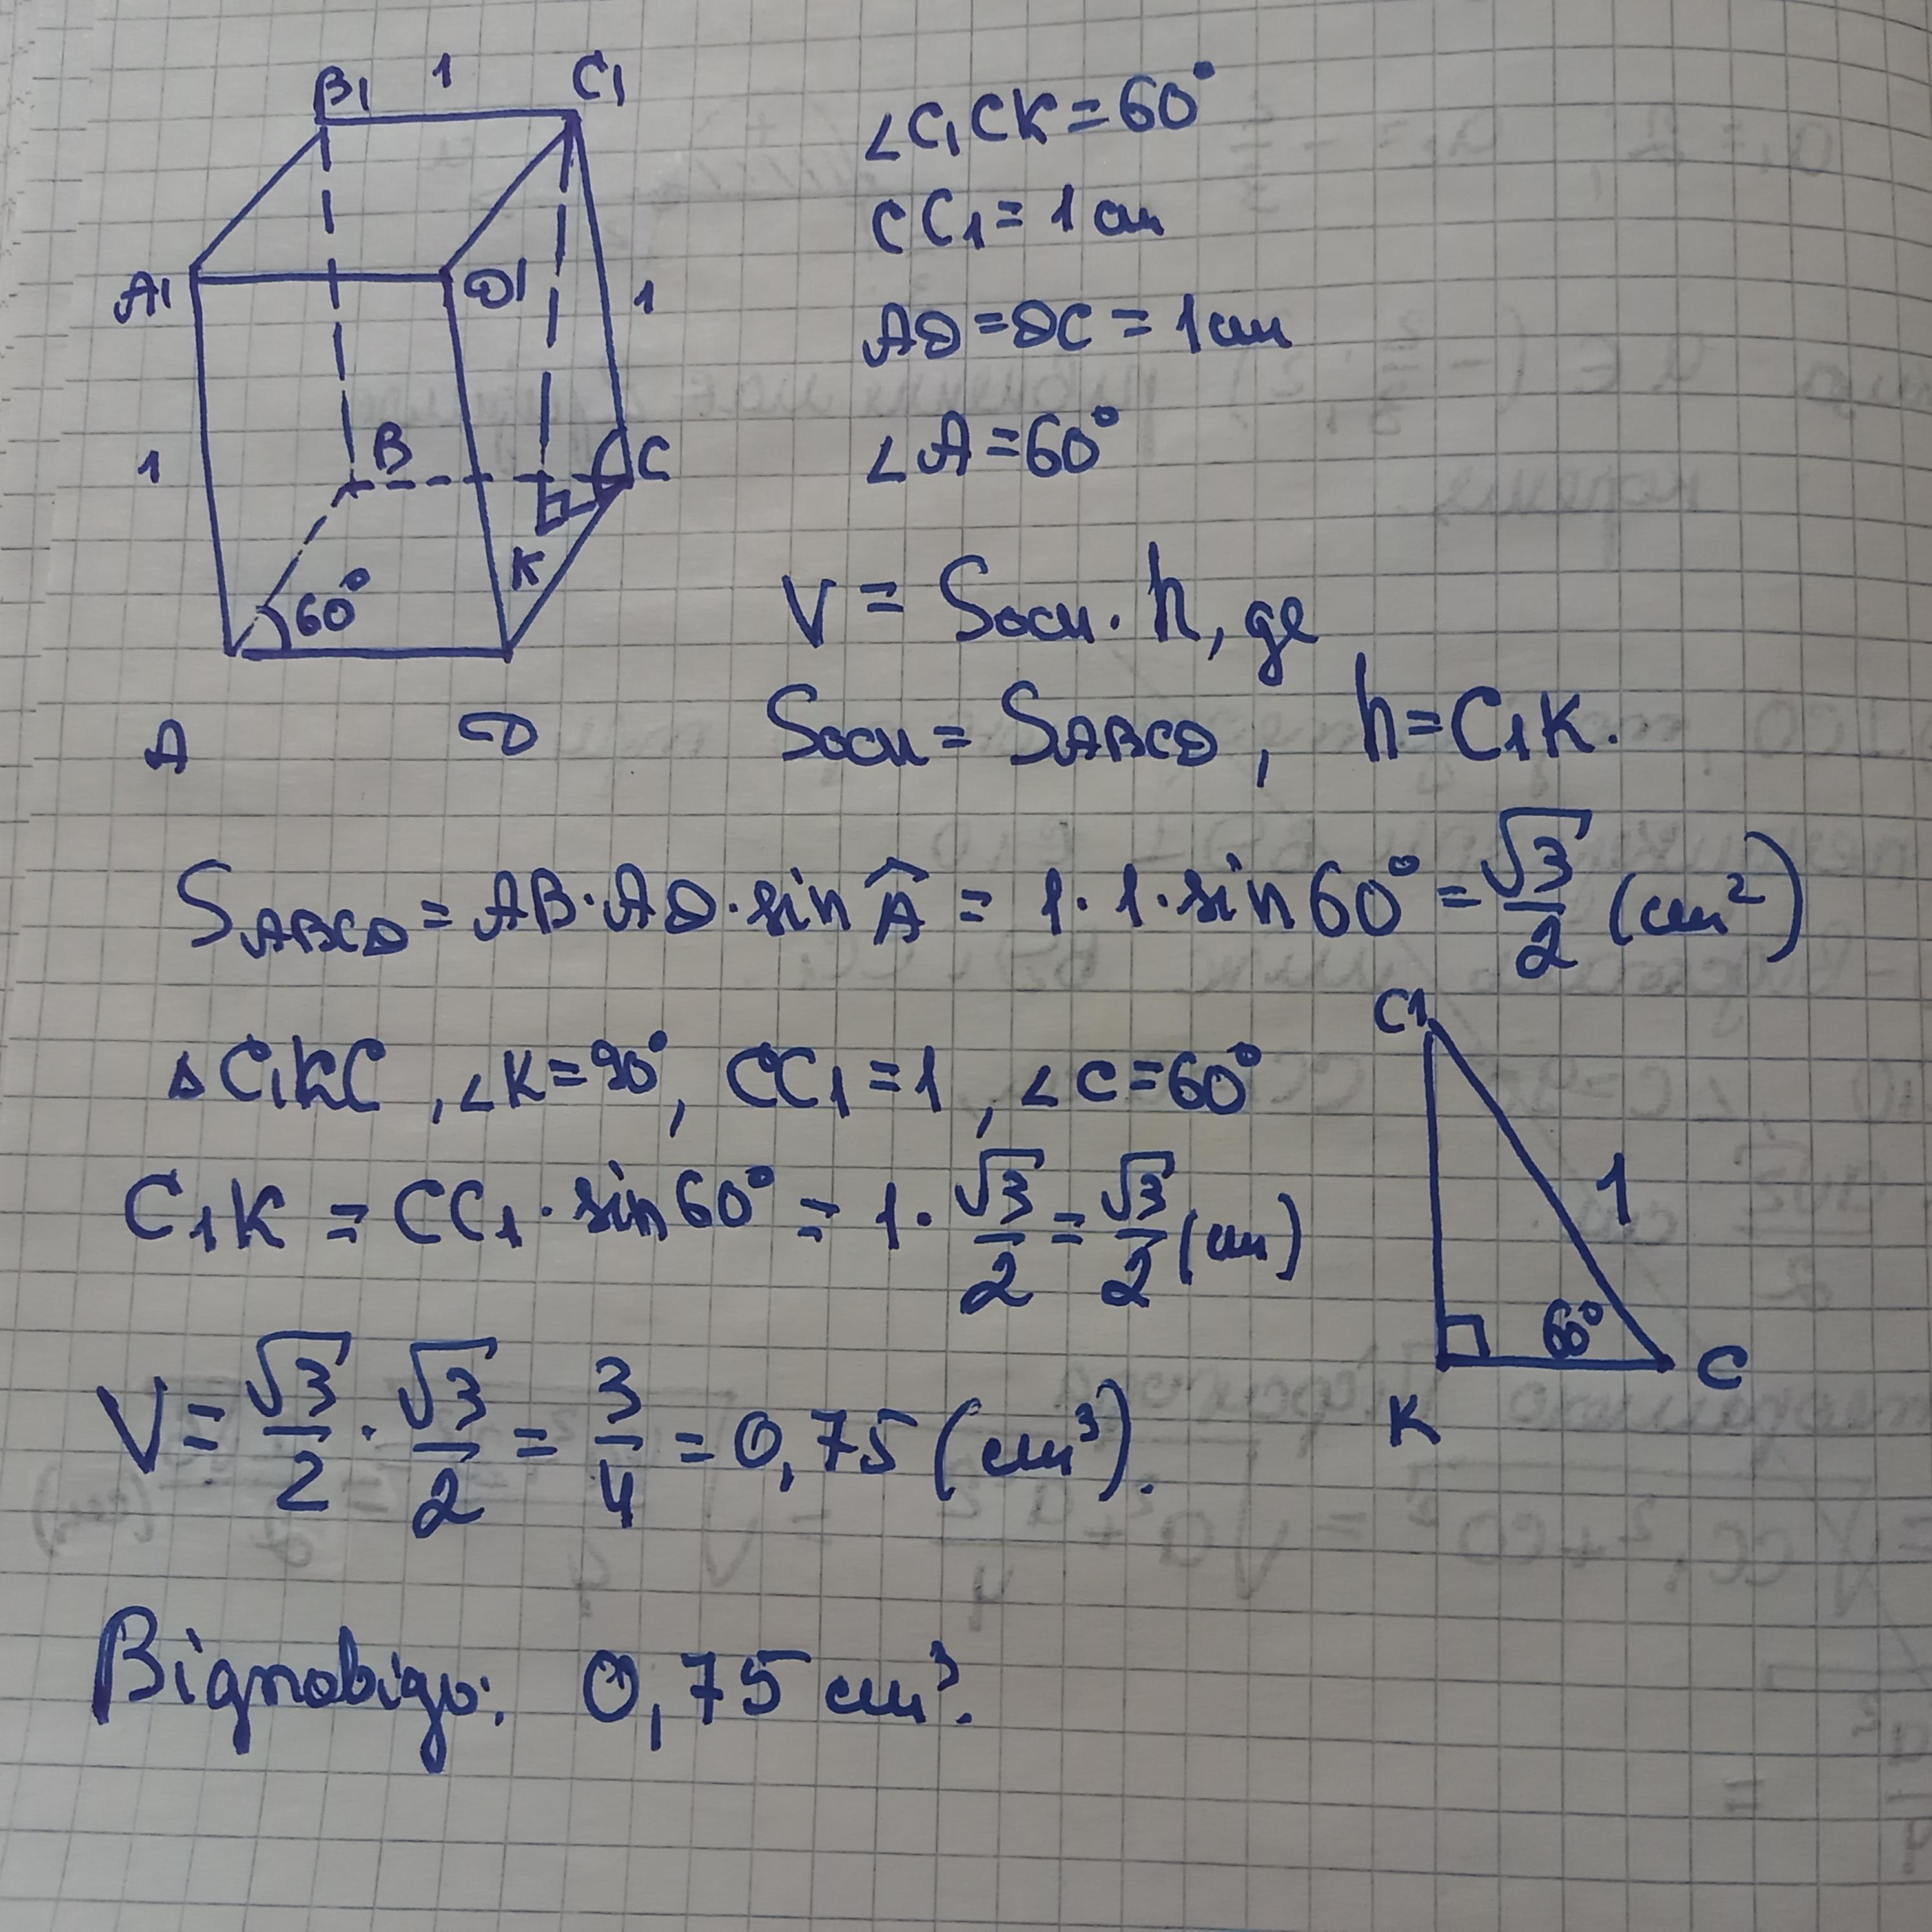 B1 1 C1
A1 D1 1
1 B C
K
60°
A D
∠C1CK=60°
CC1=1см
AD=DC=1см
∠A=60°
V = Sосн·h, де
Sосн=SABCD, h=C1K.
SABCD=AB·AD·sin Â = 1·1·sin60°=√3/2 (см²)
△C1KC, ∠K=90°, CC1=1, ∠C=60°
C1K = CC1·sin60° = 1·√3/2=√3/2(см)
C1
1
60°
K C
V=√3/2·√3/2=3/4=0,75(см³).
Відповідь: 0,75 см³.